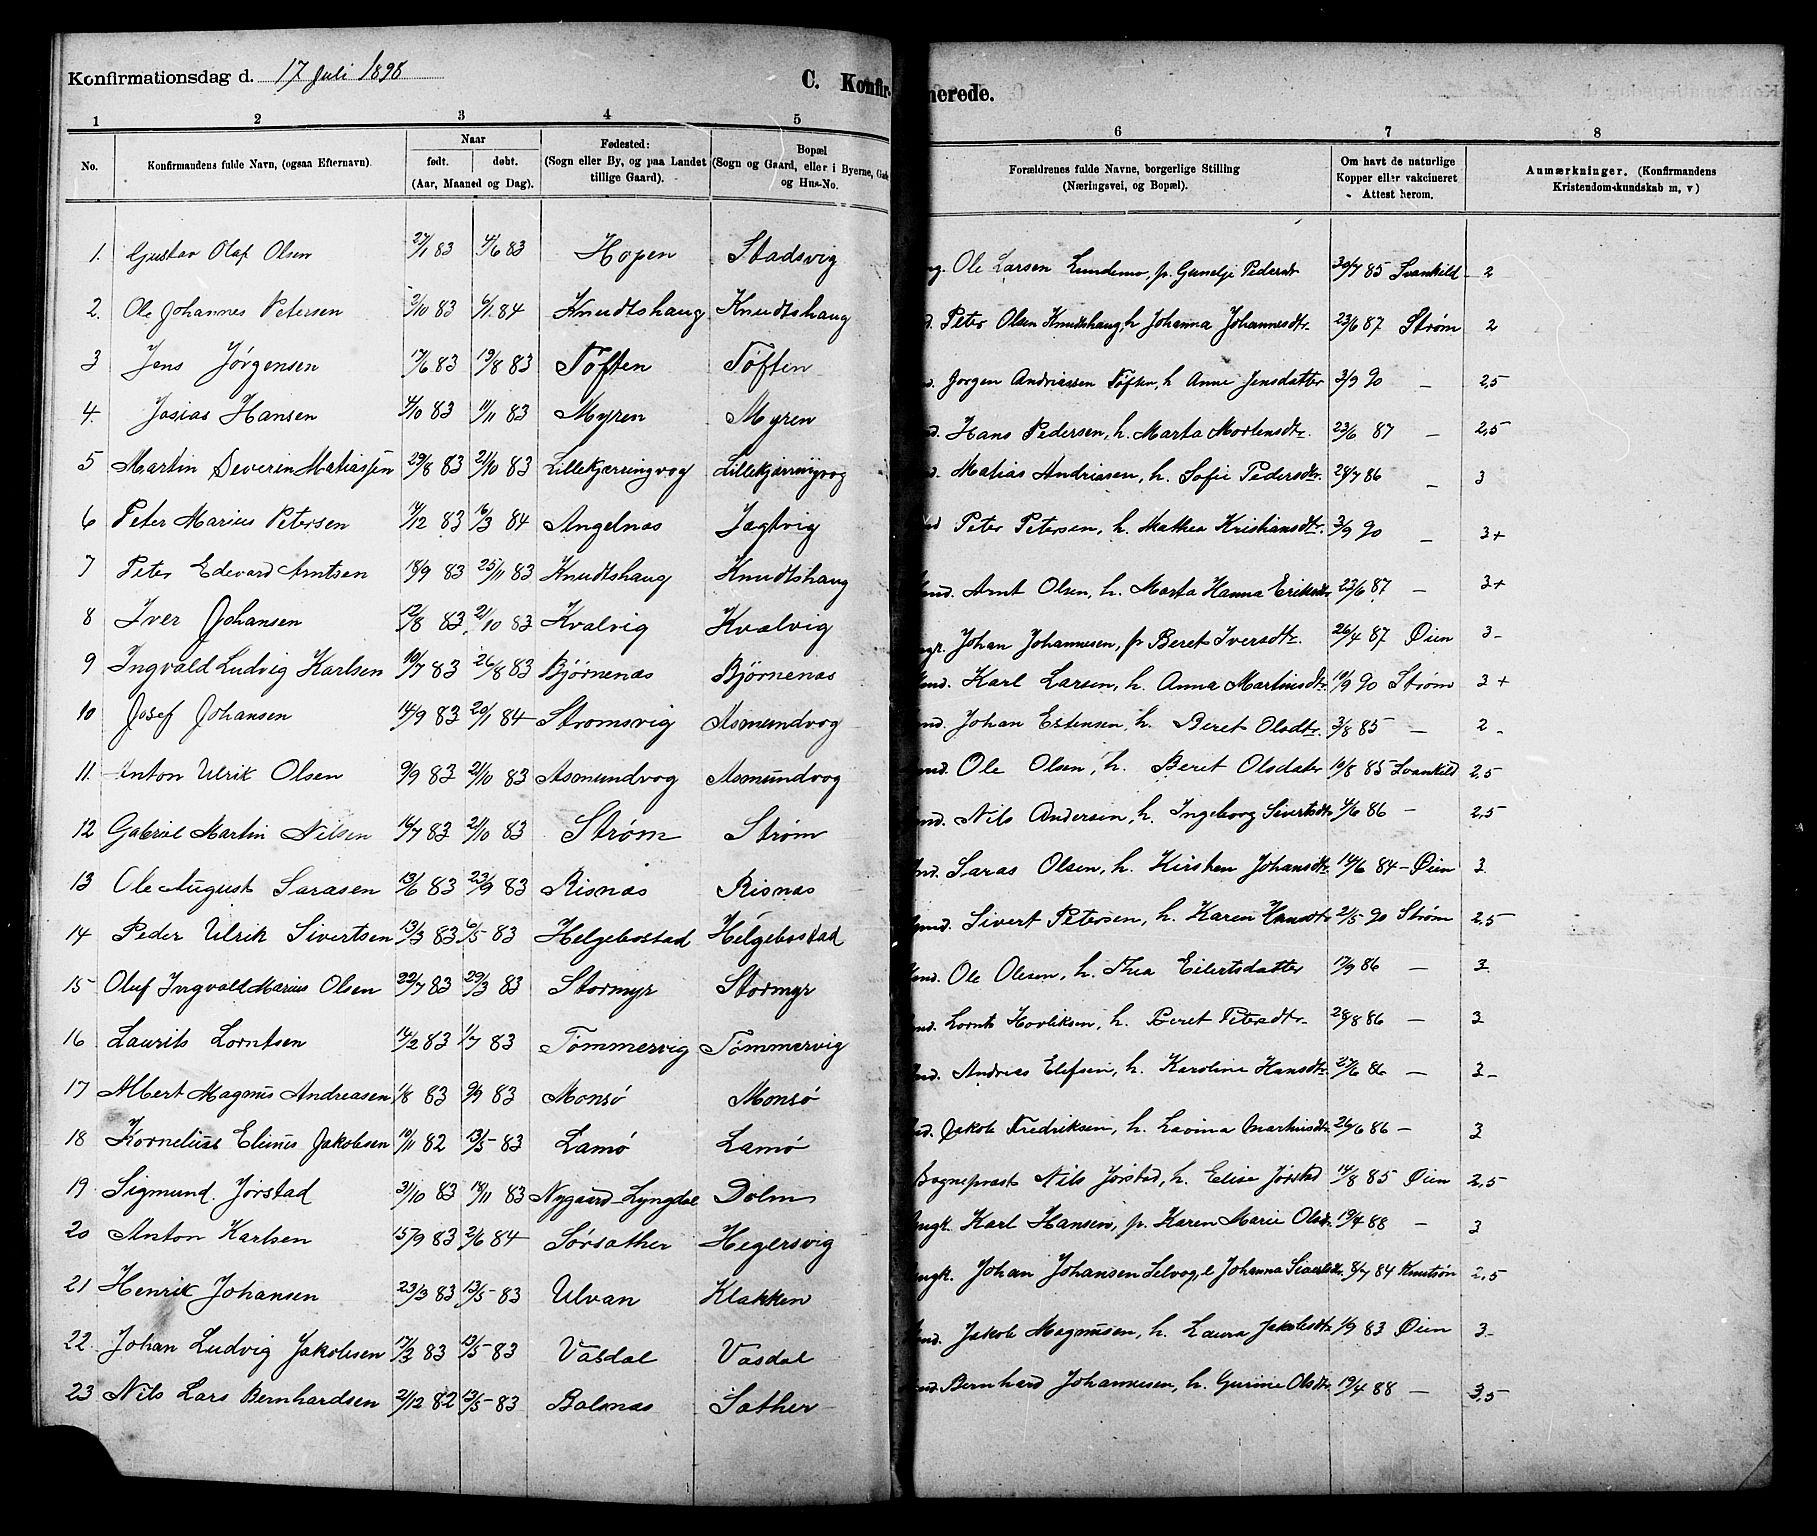 Konfirmationsdag d. 17 Juli 1898 C. Konfir- merede.
1 2 3 4 5 6 7 8
No. Konfirmandens fulde Navn, (ogsaa Efternavn). Naar født. døbt. (Aar, Maaned og Dag). Fødested: (Sogn eller By, og paa Landet tillige Gaard). Bopæl (Sogn og Gaard, eller i Byerne, og Hus-No. Forældrenes fulde Navne, borgerlige Stilling (Næringsvei, og Bopæl). Om havt de naturlige Kopper eller vakcineret Attest herom. Anmærkninger. (Konfirmandens Kristendomskundskab m, v)
1. Gustav Olaf Olsen 27/1 83 4/6 83 Hopen Stadsvig Ole Larsen Lundemo, p. Gunelje Pedersdt 30/7 85 Svankild 2
2. Ole Johannes Petersen 3/10 83 6/1 84 Knudtshaug Knudtshaug Peter Olsen Knudtshaug, h Johanna Johannesdtr. 23/6 87 Strøm 2
3 Jens Jörgensen 17/6 83 19/8 83 Töften Töften Jorgen Andriassen Töften, h Anne Jensdatter 3/9 90 — 2,5
4. Josias Hansen 4/10 83 11/11 83 Myren Myren Hans Pedersen, h. Marta Mortensdtr. 23/6 87 — 2,5
5 Martin Severin Matiassen 29/8 83 21/10 83 Lillekjærringvog Lillekjærringvog Matias Andriasen, h. Sofie Pedersdtr. 28/7 86 — 3
6 Peter Marius Petersen 14/12 83 16/3 84 Angelnæs Jagtvig Peter Petersen, h. Mathea Kristiansdtr. 3/9 90 — 3+
7 Peter Edevard Arntsen 18/9 83 25/11 83 Knudtshaug Knudtshaug Arnt Olsen, h. Marta Hanna Eriksdtr 23/6 87 — 3+
8 Iver Johansen 12/8 83 21/10 83 Kvalvig Kvalvig Johan Johannesen, p. Beret Iversdtr. 26/4 87 Øien 3-
9 Ingvald Ludvig Karlsen 10/7 83 26/8 83 Bjørnenæs Bjørnenæs Karl Larsen, h. Anna Martinusdtr 10/9 90 Strøm 3+
10 Josef Johansen 14/9 83 20/1 84 Stromsvig Asmundvog Johan Estensen, h. Beret Olsdtr. 3/8 85 — 2-
11. Anton Ulrik Olsen 9/9 83 21/10 83 Asmundvog Asmundvog Ole Olsen, h. Beret Olsdater 10/8 85 Svankild 2,5
12 Gabriel Martin Nilsen 16/7 83 21/10 83 Strøm Strøm Nils Andersen, h. Ingeborg Sivertsdtr 4/6 86 — 2,5
13 Ole August Sarasen 13/6 83 23/9 83 Risnæs Risnæs Saras Olsen, h. Kirsten Johansdtr. 14/6 84 — Øien 3
14 Peder Ulrik Sivertsen 13/3 83 6/5 83 Helgebostad Helgebostad Sivert Petersen, h. Karen Hansdtr 2/5 90 Strøm 2,5
15 Oluf Ingvald Marius Olsen 22/7 83 29/3 83 Stormyr Stormyr Ole Olesen, h. Thea Eilertsdatter 17/9 86 — 3
16 Laurits Lorntsen 14/2 83 1/7 83 Tömmervig Tömmervig Lornts Hovliksen, h. Beret Petersdtr. 28/8 86 — 3
17 Albert Magnus Andreasen 1/8 83 9/9 83 Monsö Monsö Andreas Elefsen, h. Karoline Hansdtr. 27/6 86 — 3-
18 Kornelius Elinus Jakobsen 10/11 82 13/5 83 Lamö Lamö Jakob Fredriksen, h. Lavina Martinusdtr. 26/6 86 — 3
19 Sigmund Jörstad 31/10 83 18/11 83 Nygaard Lyngdal Dolm Sogneprest Nils Jörstad, h. Elise Jörstad 14/8 85 Øien 2,5
20 Anton Karlsen 15/9 83 2/6 84 Sörsæther Hegersvig Karl Hansen, p. Karen Marie Olsdr. 19/4 88 — 3
21 Henrik Johansen 23/3 83 13/5 83 Ulvan Klakken Johan Johansen Selvog, e Johanna Sivertsdtr. 8/7 84 Knutsön 2,5
22. Johan Ludvig Jakobsen 17/3 83 13/5 83 Vasdal Vasdal Jakob Magnusen, h. Laura Jakobsdtr 1/9 83 Øien 3-
23 Nils Lars Bernhardsen 2/12 82 13/5 83 Balsnæs Sæther Bernhard Johannesen, h. Gurine Olsdtr 19/4 88 — 3,5